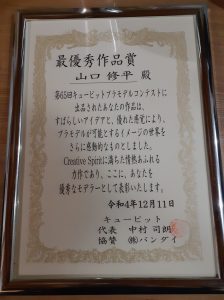 最優秀作品賞
山口 修平 殿
第65回キューピットプラモデルコンテストに
出品されたあなたの作品は、
すばらしいアイデアと、優れた感覚により、
プラモデルが可能とするイメージの世界を
さらに感動的なものとしました。
Creative Spiritに満ちた情熱あふれる
力作であり、ここに、あなたを
優秀なモデラーとして表彰いたします。
令和4年12月11日
キューピット
代表 中村 司朗
協賛 ㈱バンダイ